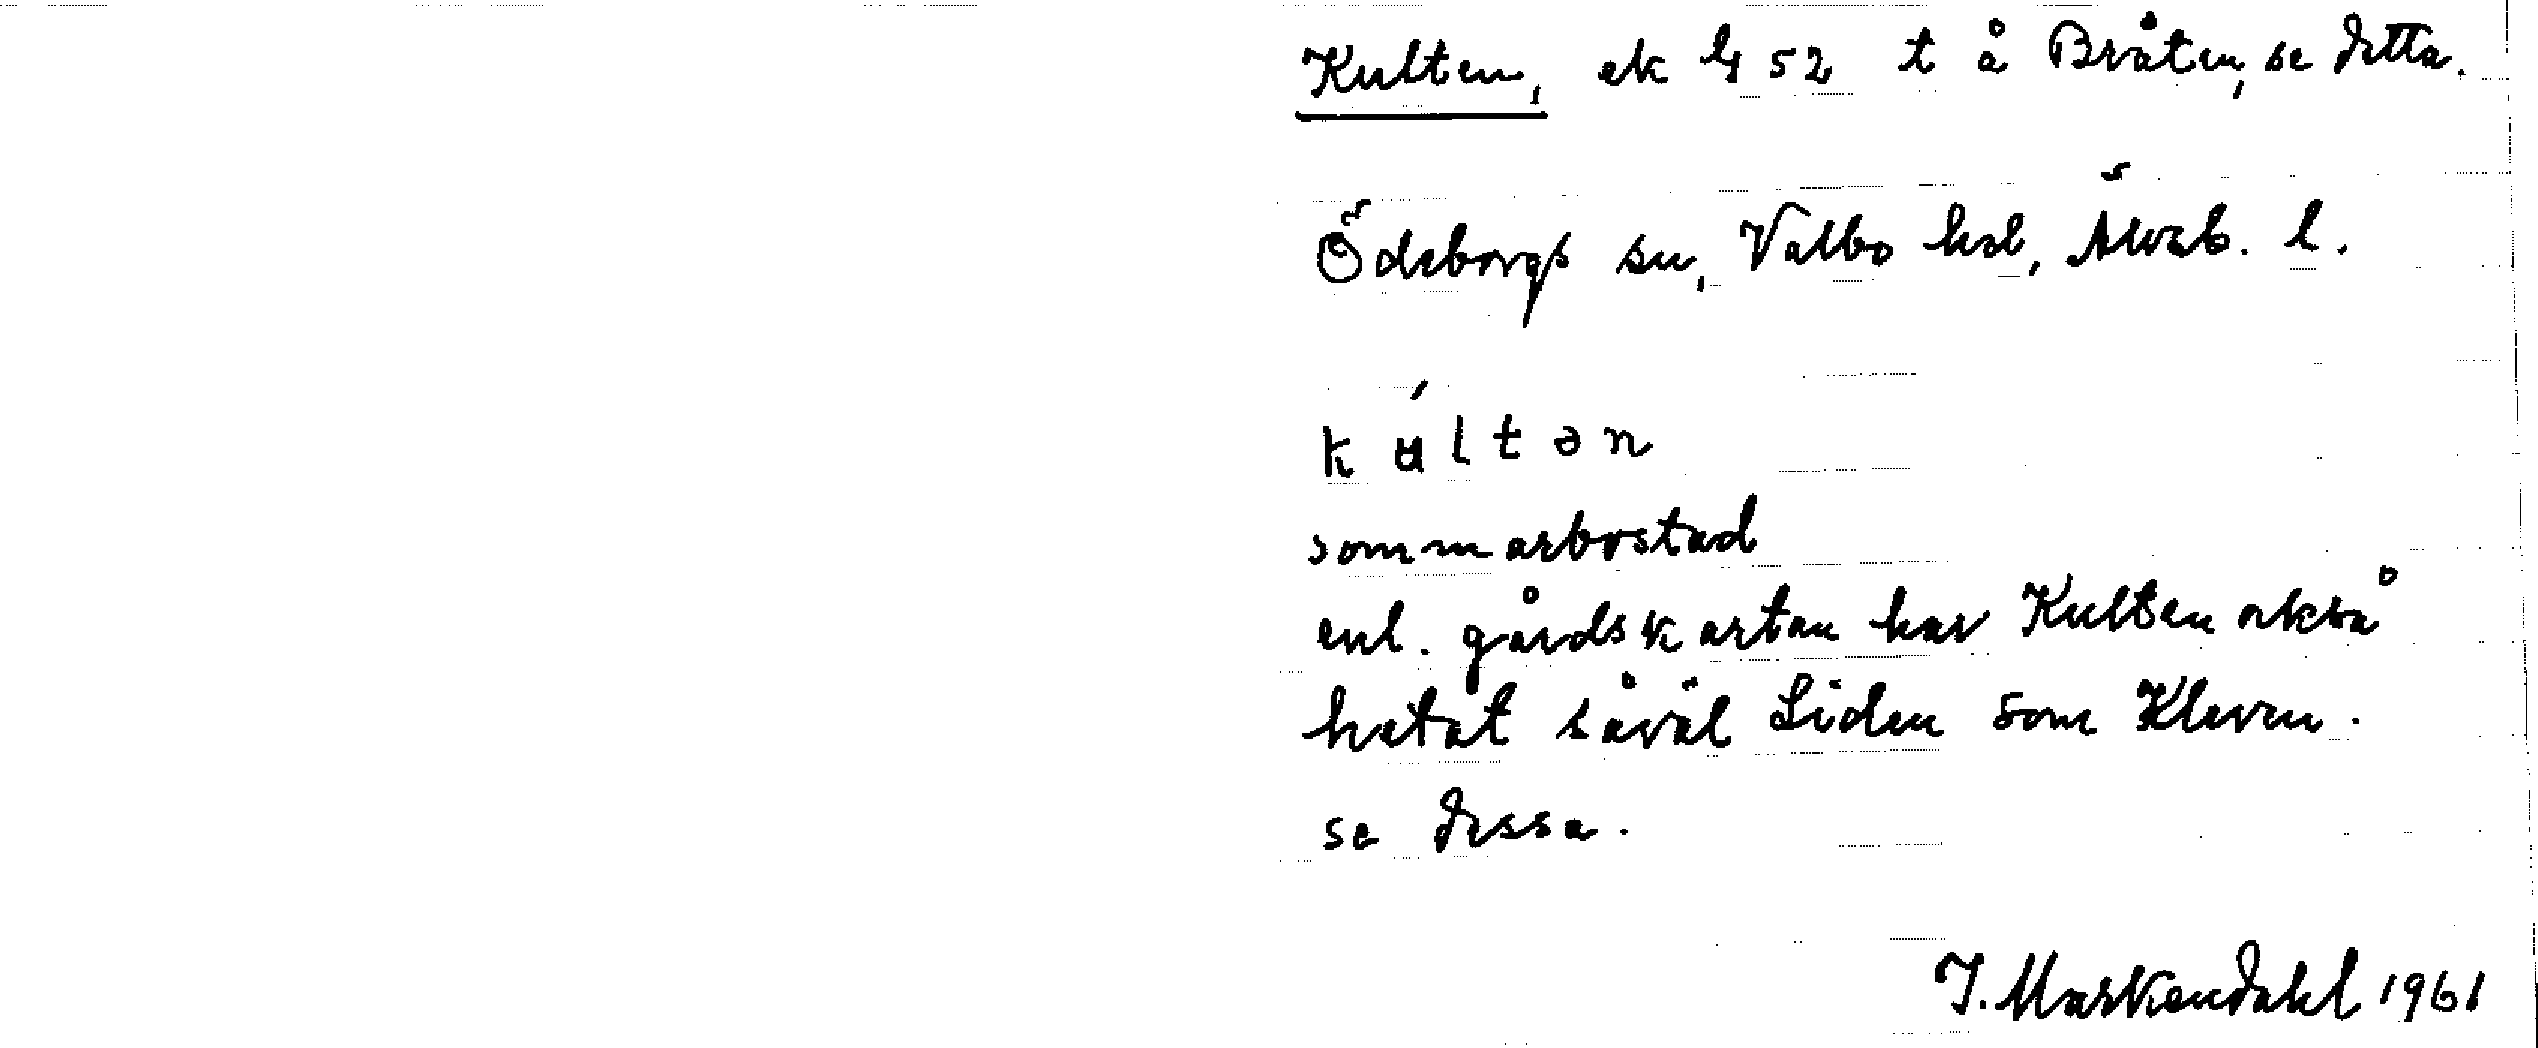 Kulten, ek lg 52 t å Bråten, se detta.
Ödeborgs sn, Valbo hd, Älvsb. l.
kúltən
sommarbostad
enl. gårdskartan har Kulten också
hetat såväl Liden som Kleven.
se dessa.
J. Markendahl 1961